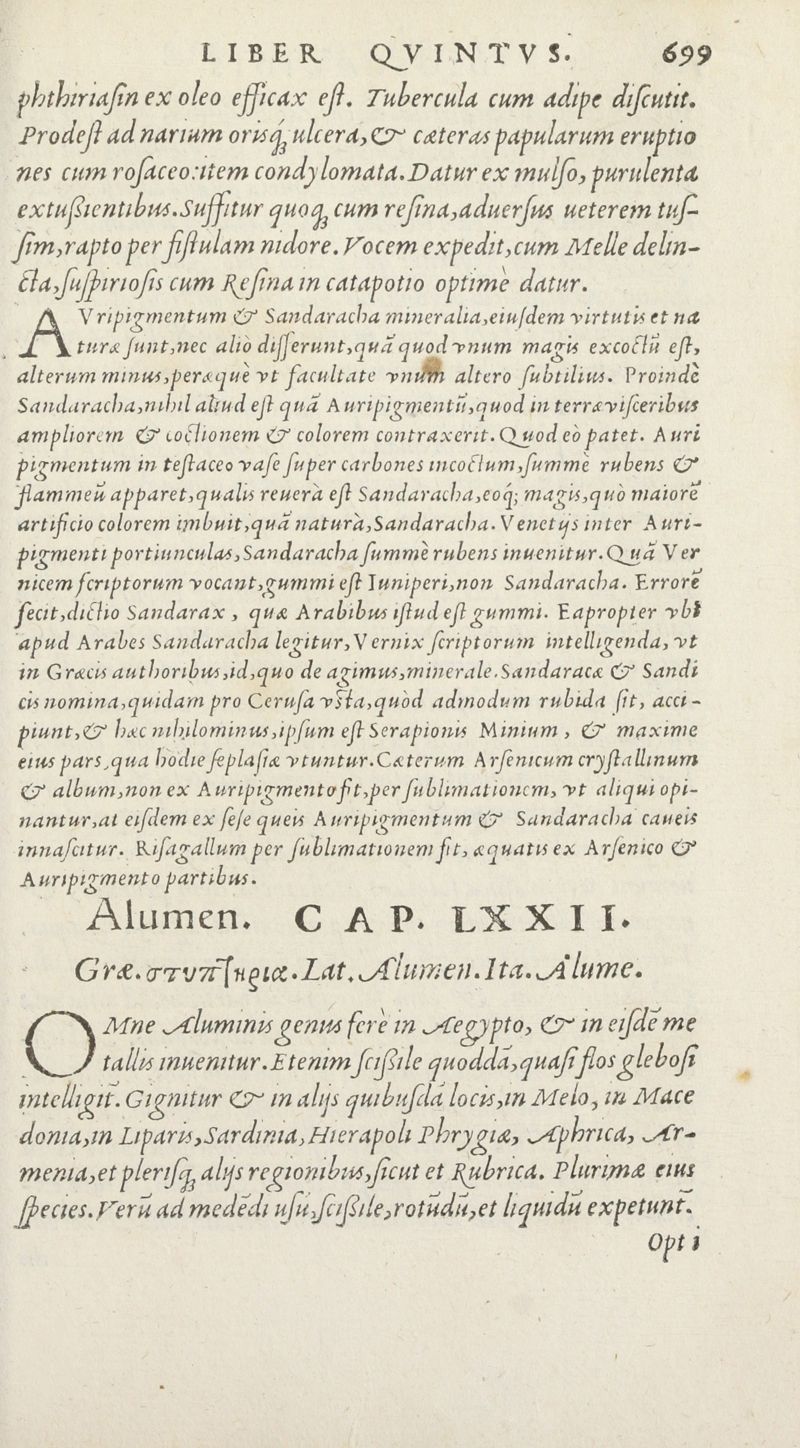 LIBER QVINTVS. 699
phthiriaſin ex oleo efficax eſt. Tubercula cum adipe diſcutit.
Prodeſt ad narium orisq́; ulcera, & cæteras papularum eruptio
nes cum roſaceo: item condylomata. Datur ex mulſo, purulenta
extußientibus. Suffitur quoq; cum reſina, aduerſus ueterem tuſ-
ſim, rapto per fiſtulam nidore. Vocem expedit, cum Melle delin-
cta, ſuſpirioſis cum Reſina in catapotio optimè datur.
AVripigmentum & Sandaracha mineralia, eiuſdem virtutis et na
turæ ſunt, nec alio differunt, quā quod vnum magis excoctū eſt,
alterum minus, peræquè vt facultate vnum altero ſubtilius. Proindè
Sandaracha, nihil aliud eſt quā Auripigmentū, quod in terræ viſceribus
ampliorem & coctionem & colorem contraxerit. Quod eò patet. Auri
pigmentum in teſtaceo vaſe ſuper carbones incoctum, ſummè rubens &
flammeū apparet, qualis reuerà eſt Sandaracha, eoq́; magis, quò maiorē
artificio colorem imbuit, quā naturà, Sandaracha. Venetijs inter Auri-
pigmenti portiunculas, Sandaracha ſummè rubens inuenitur. Quā Ver
nicem ſcriptorum vocant, gummi eſt Iuniperi, non Sandaracha. Errorē
fecit, dictio Sandarax, quæ Arabibus iſtud eſt gummi. Eapropter vbi
apud Arabes Sandaracha legitur, Vernix ſcriptorum intelligenda, vt
in Græcis authoribus, id, quo de agimus, minerale. Sandaracæ & Sandi
cis nomina, quidam pro Ceruſa vſta, quòd admodum rubida ſit, acci-
piunt, & hæc nihilominus, ipſum eſt Serapionis Minium, & maxime
eius pars, qua hodie ſeplaſiæ vtuntur. Cæterum Arſenicum cryſtallinum
& album, non ex Auripigmento fit, per ſublimationem, vt aliqui opi-
nantur, at eiſdem ex ſeſe queis Auripigmentum & Sandaracha caueis
innaſcitur. Riſagallum per ſublimationem fit, æquatis ex Arſenico &
Auripigmento partibus.
Alumen. CAP. LXXII.
Græ. στυπτηρία. Lat. Alumen. Ita. Alume.
OMne Aluminis genus ferè in Aegypto, & in eiſdē me
tallis inuenitur. Etenim ſcißile quoddā, quaſi flos gleboſi
intelligit. Gignitur & in alijs quibuſdā locis, in Melo, in Mace
donia, in Liparis, Sardinia, Hierapoli Phrygiæ, Aphrica, Ar-
menia, et pleriſq; alijs regionibus, ſicut et Rubrica. Plurimæ eius
ſpecies. Verū ad medēdi uſū, ſcißile, rotūdū, et liquidū expetunt.
Opti